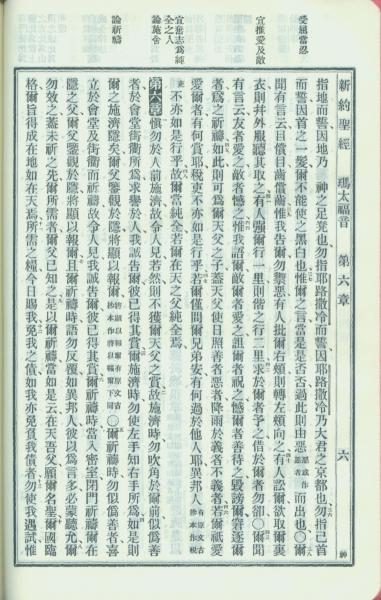 新約聖經 瑪太福音 第六章 六
受屈當忍
宜推愛及敵
宜奮志爲純全之人
論施舍
論祈禱
指地而誓因地乃 神之足凳也勿指耶路撒冷而誓因耶路撒冷乃大君之京都也勿指己首
而誓因首之一髮爾不能使之黑白也惟爾之言當是是否否過此則由惡而出也〇爾
聞有言云目償目齒償齒惟我告爾勿禦惡有人批爾右頰則轉左頰向之有人訟爾欲取爾裏
衣則幷外服聽其取之有人強爾行一里則偕之行二里求於爾者予之借於爾者勿卻〇爾聞
有言云友者愛之敵者憾之惟我語爾敵爾者愛之詛爾者祝之憾爾者善待之毀謗爾窘逐爾
者爲之祈禱如此則可爲爾天父之子蓋天父使日照善者惡者降雨於義者不義者若爾祗愛
愛爾者有何賞耶稅吏不亦如是行乎若爾僅問爾兄弟安有何過於他人耶異邦人有原文古抄本作稅
吏不亦如是行乎故爾當純全若爾在天之父純全焉
第六章 愼勿於人前施濟故令人見若然則不獲爾天父之賞故施濟時勿吹角於爾前似僞善
者於會堂街衢所爲求譽於人我誠告爾彼已得其賞爾施濟時勿使左手知右手所爲如是則
爾之施濟隱矣爾父鑒觀於隱將顯以報爾〇爾祈禱時勿似僞善者喜
立於會堂及街衢而祈禱故令人見我誠告爾彼已得其賞爾祈禱時當入密室閉門祈禱爾在
隱之父爾父鑒觀於隱將顯以報爾且爾祈禱時語勿反覆如異邦人彼以爲言多必蒙聽允爾
勿效之蓋未祈之先爾所需者爾父已知之是以爾祈禱當如是云在天吾父願爾名聖爾國臨
格爾旨得成在地如在天焉所需之糧今日賜我免我之債如我亦免負我債者勿使我遇試惟